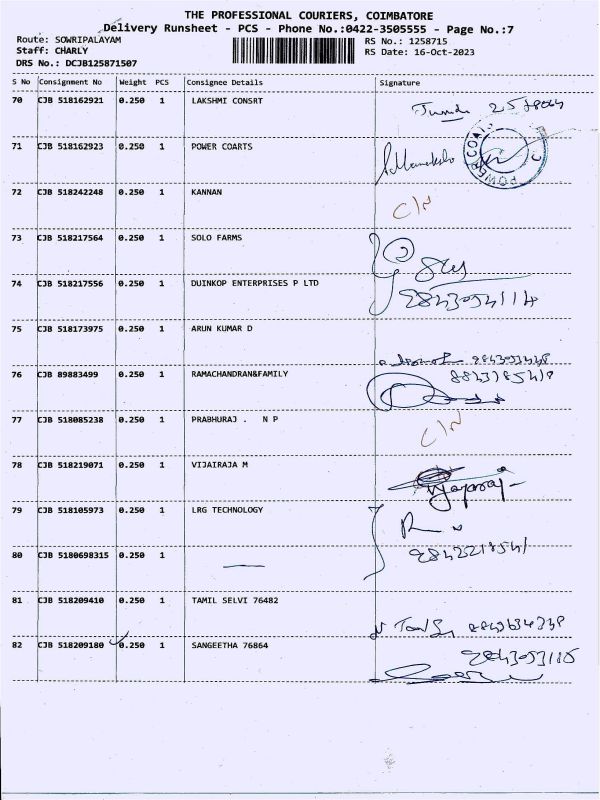 THE PROFESSIONAL COURIERS, COIMBATORE
Delivery Runsheet - PCS - Phone No.:0422-3505555 - Page No.:7
Route: SOWRIPALAYAM
RS No.: 1258715
Staff: CHARLY
RS Date: 16-Oct-2023
DRS No.: DCJB125871507
S No Consignment No Weight PCS Consignee Details Signature
70 CJB 518162921 0.250 1 LAKSHMI CONSRT
71 CJB 518162923 0.250 1 POWER COARTS
POWER COATS
72 CJB 518242248 0.250 1 KANNAN
C/N
73 CJB 518217564 0.250 1 SOLO FARMS
74 CJB 518217556 0.250 1 DUINKOP ENTERPRISES P LTD
9843054114
75 CJB 518173975 0.250 1 ARUN KUMAR D
76 CJB 89883499 0.250 1 RAMACHANDRAN&FAMILY
77 CJB 518085238 0.250 1 PRABHURAJ . N P
C/N
78 CJB 518219071 0.250 1 VIJAIRAJA M
79 CJB 518105973 0.250 1 LRG TECHNOLOGY
80 CJB 5180698315 0.250 1
81 CJB 518209410 0.250 1 TAMIL SELVI 76482
82 CJB 518209180 0.250 1 SANGEETHA 76864